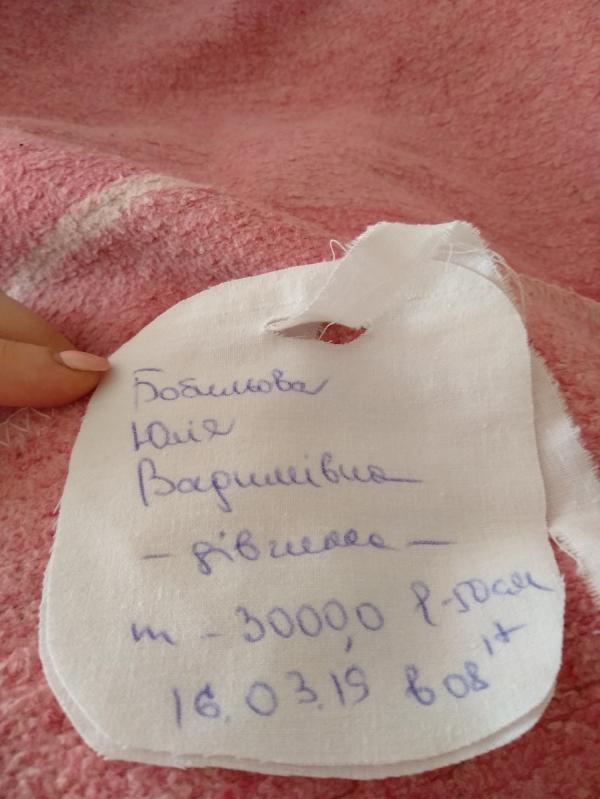 Бобильова
Юлія
Вадимівна
- дівчина -
m - 3000,0 l-50см
16.03.19 в 08 17